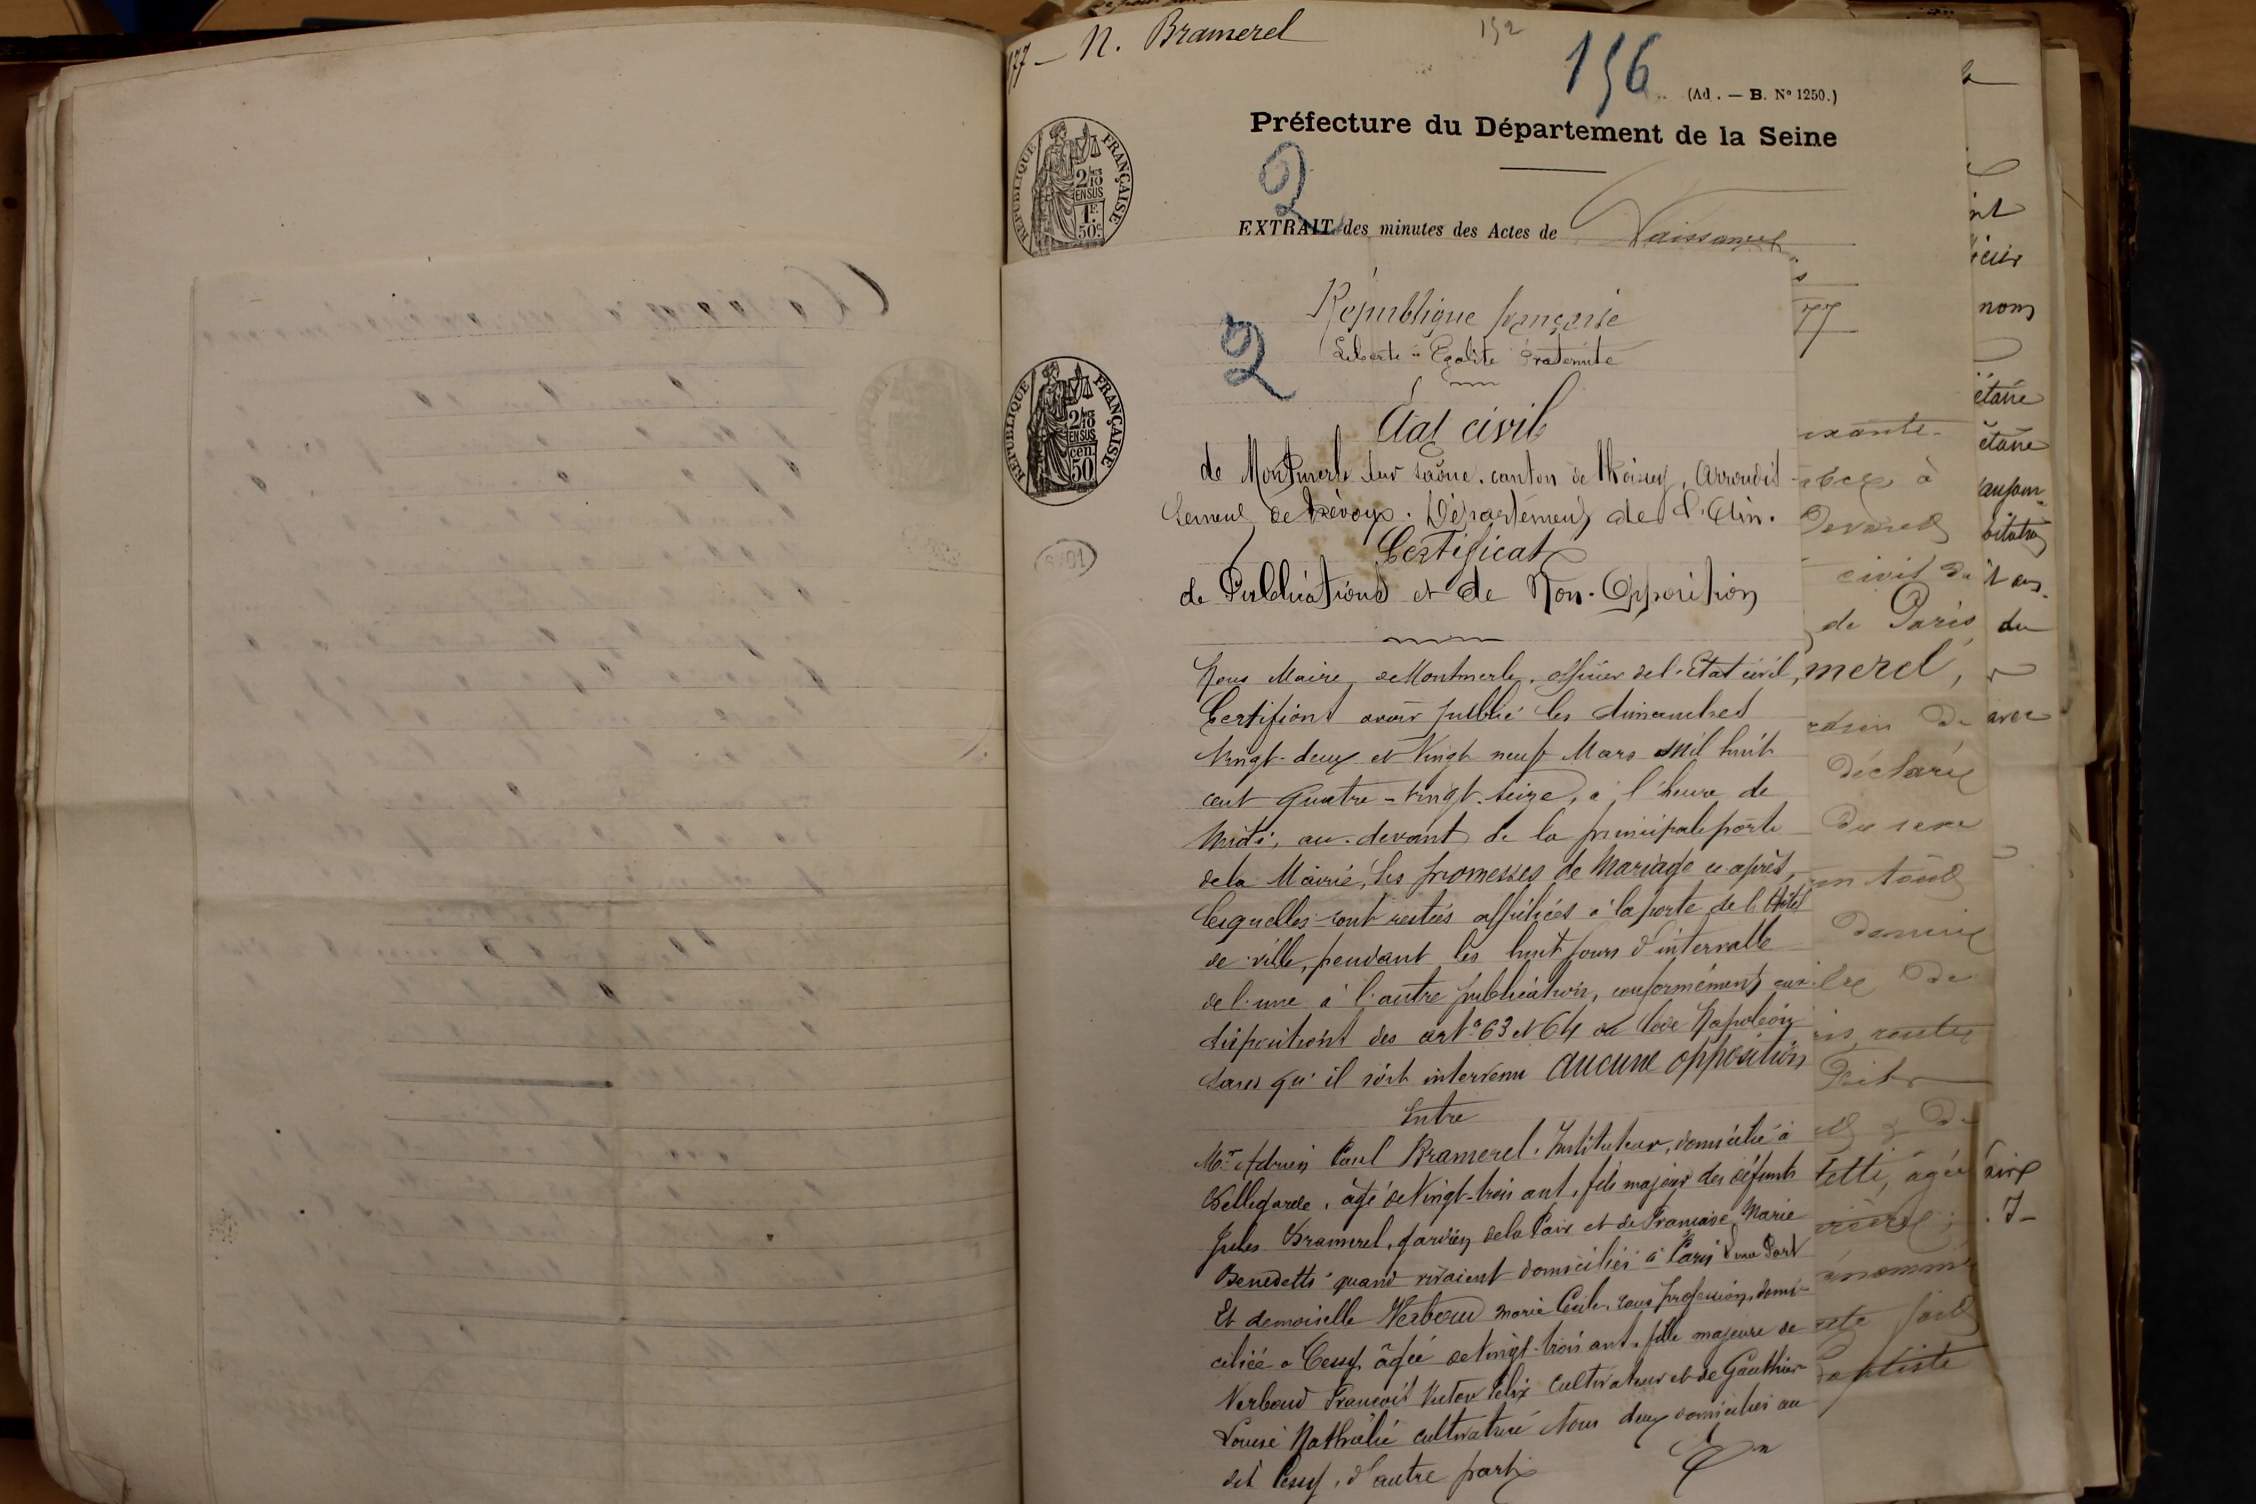 77 - N. Bramerel
152
156
(Ad. — B. Nº 1250.)
Préfecture du Département de la Seine
2
RÉPUBLIQUE FRANÇAISE
2/10 EN SUS
1F. 50c
EXTRAIT des minutes des Actes de Naissance
République française
Liberté - Egalité Fraternité
2
RÉPUBLIQUE FRANÇAISE
2/10 EN SUS
cen 50
État civil
de Montmerle sur Saône, canton de Thoissey, Arrondis-
sement de Trévoux. Département de l'Ain.
Certificat
de Publications et de Non-Opposition
Nous Maire de Montmerle, officier de l'Etat civil,
Certifions avoir publié les dimanches
Vingt-deux et Vingt neuf Mars Mil huit
cent quatre-vingt-seize, à l'heure de
Midi, au-devant de la principale porte
de la Mairie, les promesses de Mariage ci après,
lesquelles sont restées affichées à la porte de l'Hôtel
de ville, pendant les huit jours d'intervalle
de l'une à l'autre publication, conformément aux
dispositions des art.s 63 et 64 du Code Napoléon
sans qu'il soit intervenu aucune opposition
Entre
Mr Adrien Paul Bramerel, Instituteur, domicilié à
Bellegarde, âgé de Vingt-trois ans, fils majeur des défunts
Jules Bramerel, gardien de la Paix et de Françoise Marie
Benedetti quand vivaient domiciliés à Paris d'une Part
Et demoiselle Verboud Marie Cécile, sans profession, domi-
ciliée à Cessy âgée de Vingt-trois ans, fille majeure de
Verboud François Victor Félix Cultivateur et de Gauthier
Louise Nathalie cultivatrice tous deux domiciliés au
dit Cessy, d'autre part
77
civil du
de Paris
merel,
déclaré
du sexe
de
tetti, âgée
nom
avec
du